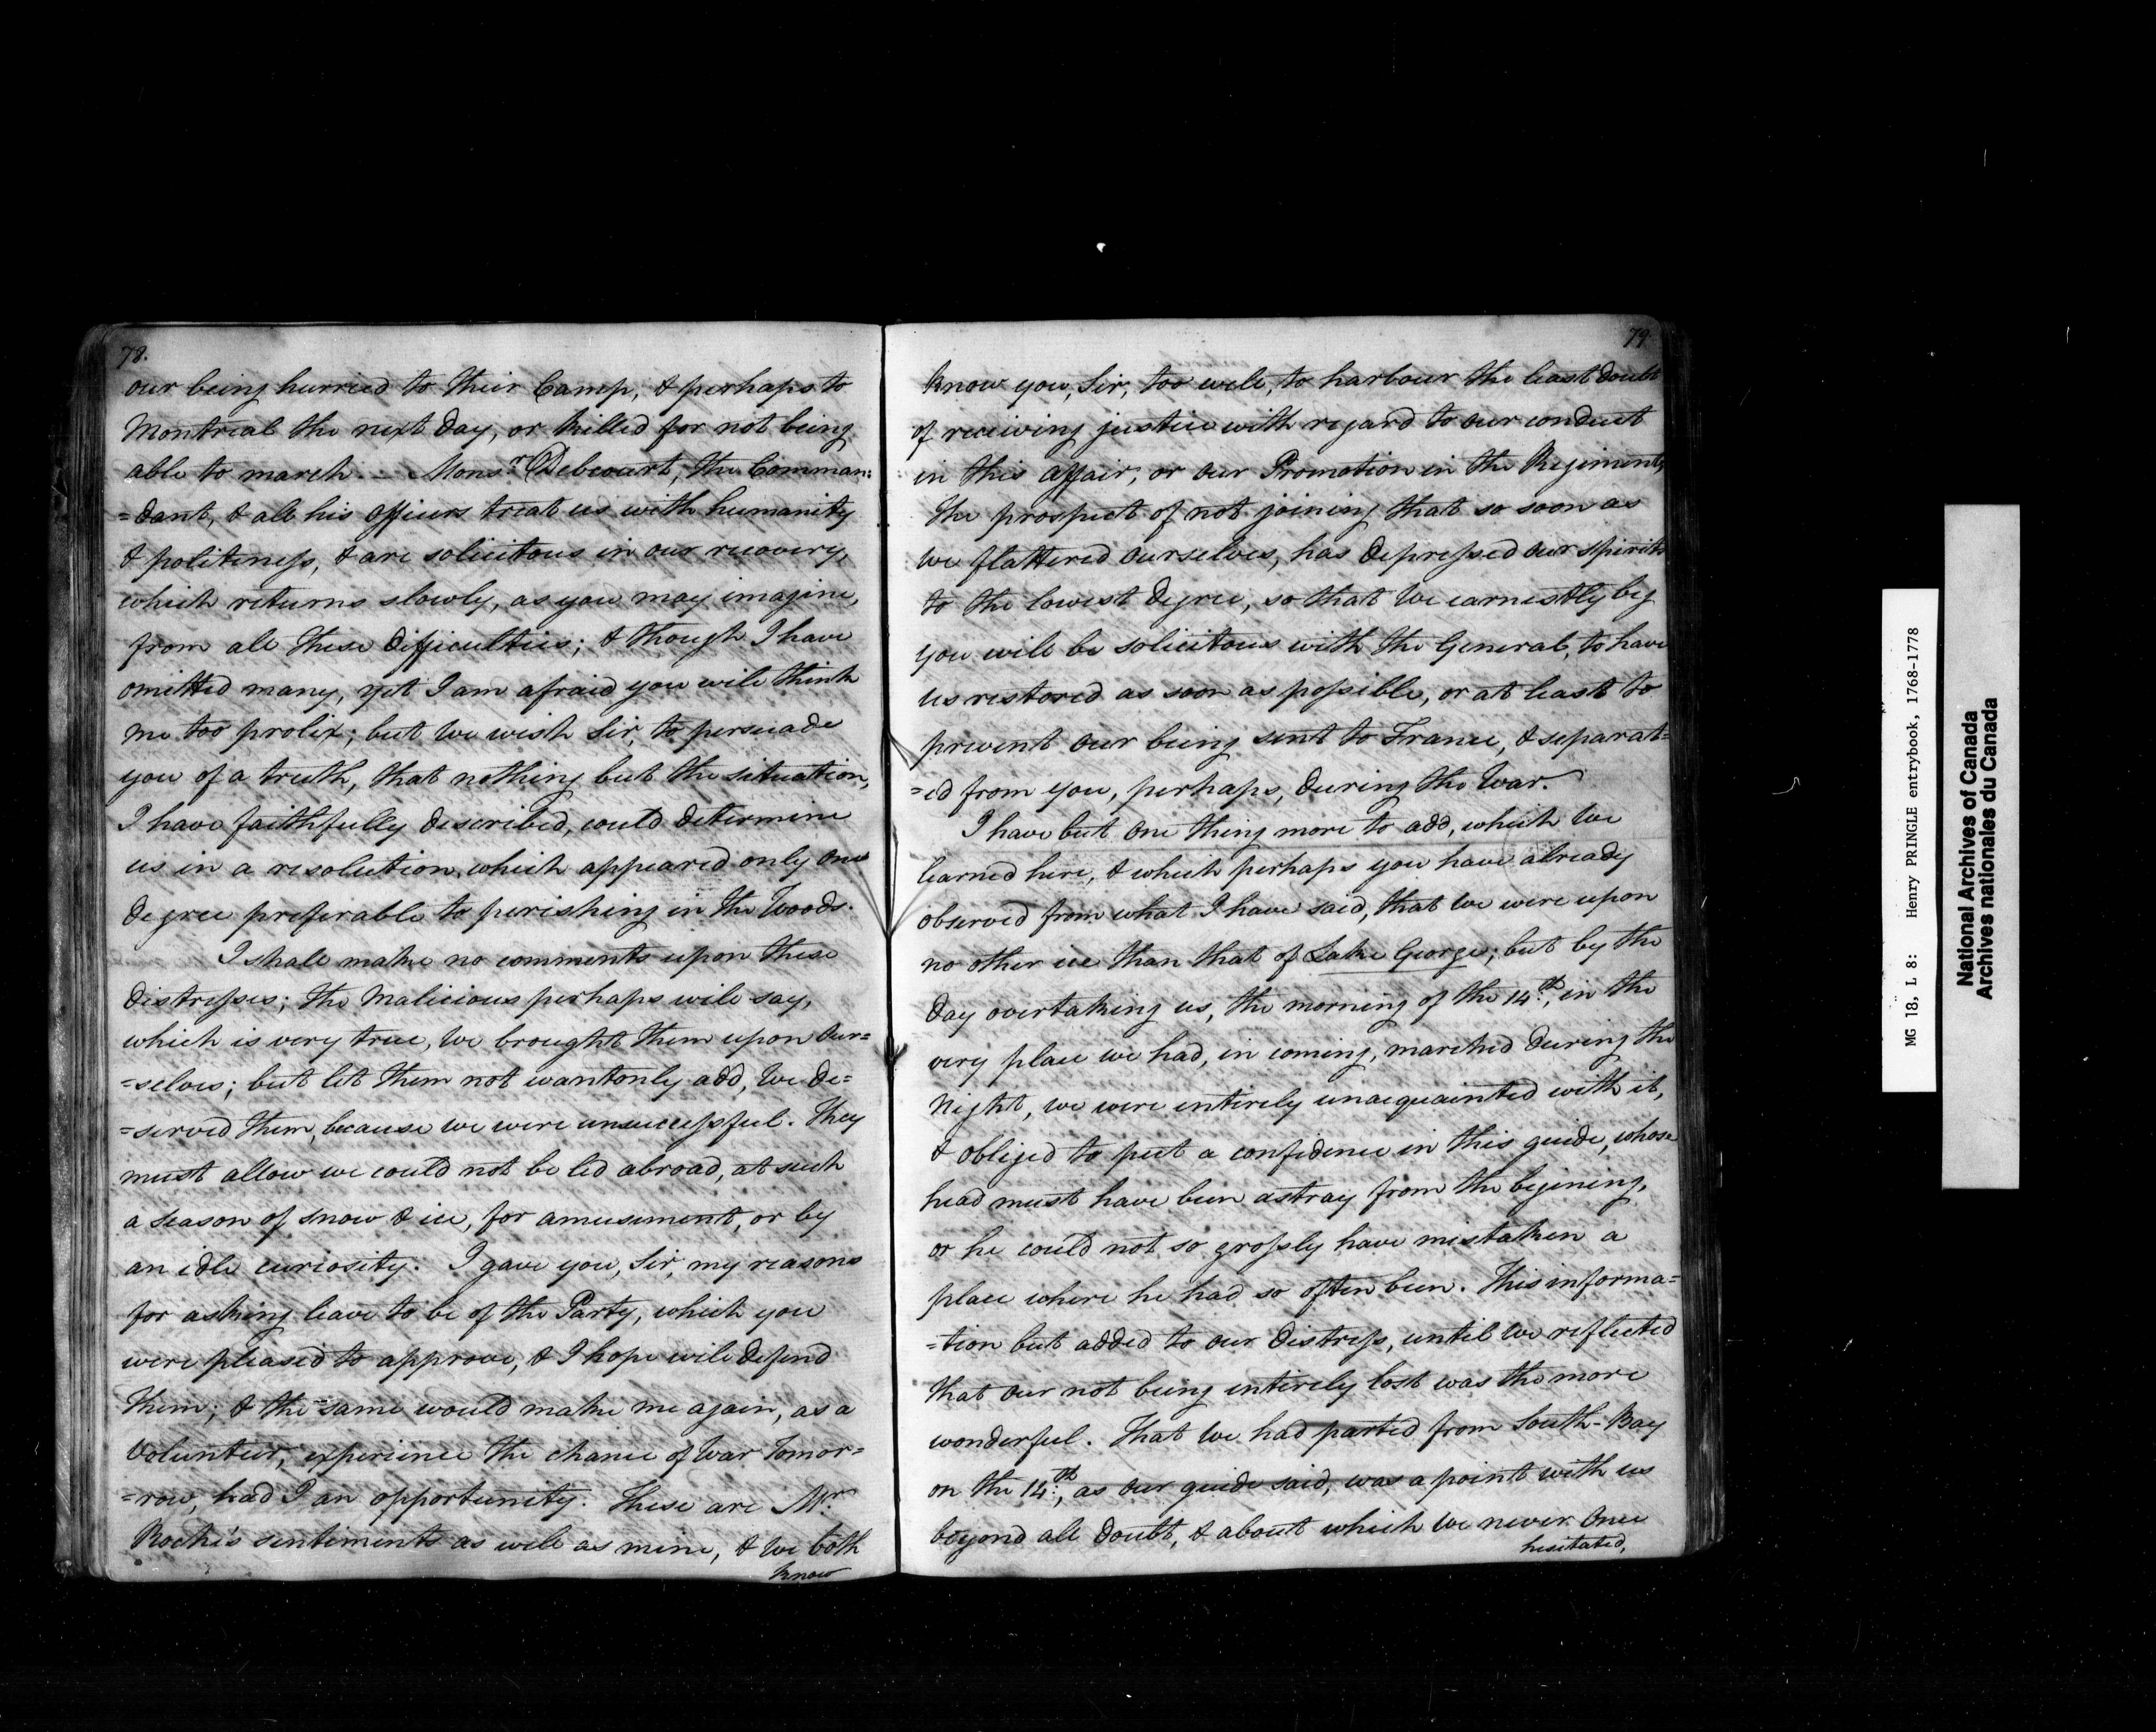 78.
our being hurried to their Camp, & perhaps to
Montreal the next day, or killed for not being
able to march. — Monsr. Debecourt, the Comman:
=dant, & all his officers treat us with humanity
& politeness, & are solicitous in our recovery,
which returns slowly, as you may imagine,
from all these difficulties; & though I have
omitted many, yet I am afraid you will think
me too prolix; but we wish Sir, to persuade
you of a truth, that nothing but the situation,
I have faithfully described, could determine
us in a resolution, which appeared only one
degree preferable to perishing in the Woods.
I shall make no comments upon these
distresses; the Malicious perhaps will say,
which is very true, we brought them upon Our=
=selves; but let them not wantonly add, We de=
=served them, because we were unsuccessful. They
must allow we could not be led abroad, at such
a season of snow & ice, for amusement, or by
an idle curiosity. I gave you, Sir, my reasons
for asking leave to be of the Party, which you
were pleased to approve, & I hope will defend
them; & the same would make me again, as a
Volunteer, experience the chance of War Tomor=
=row, had I an opportunity. These are Mr.
Roche's sentiments as well as mine, & we both
know
79
know you, Sir, too well, to harbour the least doubt
of receiving justice with regard to our conduct
in this affair, or our Promotion in the Regiment,
the prospect of not joining that so soon as
we flattered ourselves, has depressed our spirits
to the lowest degree, so that we earnestly beg
you will be solicitous with the General, to have
us restored as soon as possible, or at least to
prevent our being sent to France, & separat=
=ed from you, perhaps, during the War.
I have but one thing more to add, which we
learned here, & which perhaps you have already
observed from what I have said, that we were upon
no other ice than that of Lake George; but by the
day overtaking us, the morning of the 14th., in the
very place we had, in coming, marched during the
night, we were entirely unacquainted with it,
& obliged to put a confidence in this guide, whose
head must have been astray from the begining,
or he could not so grossly have mistaken a
place where he had so often been. This informa=
=tion but added to our distress, until we reflected
that our not being entirely lost was the more
wonderful. That we had parted from South-Bay
on the 14th., as our guide said, was a point with us
beyond all doubt, & about which we never once
hesitated,
MG 18, L 8: Henry PRINGLE entrybook, 1768-1778
National Archives of Canada
Archives nationales du Canada